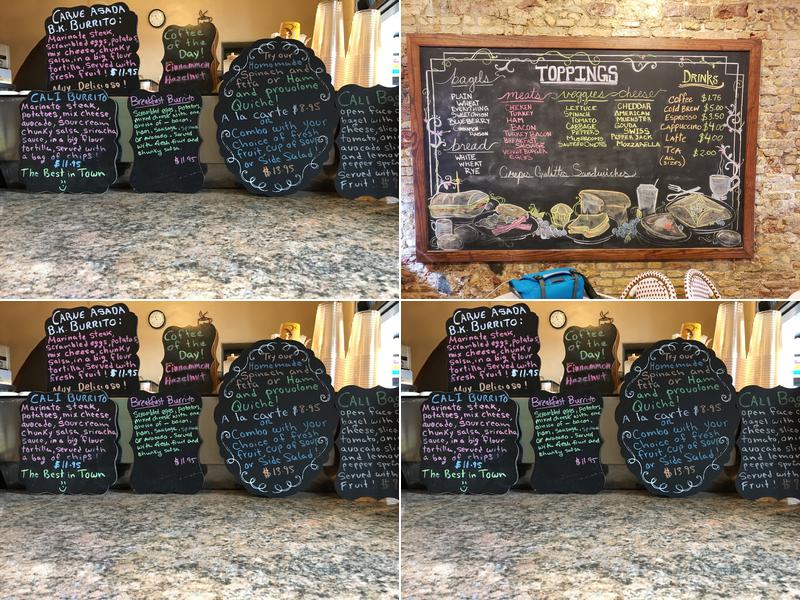 CARNE ASADA
B.K. BURRITO:
Marinate steak,
scrambled eggs, potatoes,
mix cheese, chunky
salsa, in a big flour
tortilla, Served with
fresh fruit! $11.95
Muy Delicioso!
Coffee
of the
Day!
Cinnammon
Hazelnut
CALI BURRITO
Marinate steak,
potatoes, mix cheese,
avocado, sour cream,
chunky salsa, sriracha
sauce, in a big flour
tortilla, served with
a bag of chips!
$11.95
The Best in Town
Breakfast Burrito
Scrambled eggs, Potatoes,
mixed cheese with one
choice of - bacon,
ham, Sausage,
or avocado - Served
with fresh fruit and
chunky salsa.
$11.95
Try our
Homemade
Spinach and
feta or Ham
and provolone
Quiche!
A la carte $8.95
or
Combo with your
Choice of fresh
fruit cup or soup
or Side Salad!
$13.95
CALI B
open face
bagel
tomato, oni
avocado sli
and lemon
pepper
Served with
Fruit!
TOPPINGS
bagels
PLAIN
WHEAT
EVERYTHING
SWEET ONION
BLUEBERRY
CINNAMON
RAISIN
bread
WHITE
WHEAT
RYE
meats
CHICKEN
TURKEY
HAM
BACON
TURKEY BACON
BREAKFAST
SAUSAGE
VEGGIE BURGER
veggies
LETTUCE
SPINACH
TOMATO
CABBAGE
PEPPERS
MUSHROOMS
SAUTEED ONIONS
cheese
CHEDDAR
AMERICAN
MUENSTER
GOUDA
SWISS
PEPPER JACK
MOZZARELLA
DRINKS
Coffee $1.75
Cold BREW $5.00
Espresso $3.50
Cappuccino $4.00
Latte $4.00
TEA $2.00
(ALL
SIZES)
Crepes Omelettes Sandwiches
CARNE ASADA
B.K. BURRITO:
Marinate steak,
scrambled eggs, potatoes,
mix cheese, chunky
salsa, in a big flour
tortilla, Served with
fresh fruit! $11.95
Muy Delicioso!
Coffee
of the
Day!
Cinnammon
Hazelnut
CALI BURRITO
Marinate steak,
potatoes, mix cheese,
avocado, sour cream,
chunky salsa, sriracha
sauce, in a big flour
tortilla, served with
a bag of chips!
$11.95
The Best in Town
Breakfast Burrito
Scrambled eggs, Potatoes,
mixed cheese with one
choice of - bacon,
ham, Sausage,
or avocado - Served
with fresh fruit and
chunky salsa.
$11.95
Try our
Homemade
Spinach and
feta or Ham
and provolone
Quiche!
a la carte $8.95
or
Combo with your
choice of fresh
fruit cup or soup
or Side Salad!
$13.95
CALI B
open face
bagel
tomato, oni
avocado sli
and lemon
pepper
Served with
Fruit!
CARNE ASADA
B.K. BURRITO:
Marinate steak,
scrambled eggs, potatoes,
mix cheese, chunky
salsa, in a big flour
tortilla, Served with
fresh fruit! $11.95
Muy Delicioso!
Coffee
of the
Day!
Cinnammon
Hazelnut
CALI BURRITO
Marinate steak,
potatoes, mix cheese,
avocado, sour cream,
chunky salsa, sriracha
sauce, in a big flour
tortilla, served with
a bag of chips!
$11.95
The Best in Town
Breakfast Burrito
Scrambled eggs, Potatoes,
mixed cheese with one
choice of - bacon,
ham, Sausage,
or avocado - Served
with fresh fruit and
chunky salsa.
$11.95
Try our
Homemade
Spinach and
feta or Ham
and provolone
Quiche!
a la carte $8.95
or
Combo with your
choice of fresh
fruit cup or soup
or Side Salad!
$13.95
CALI B
open face
bagel
tomato, oni
avocado sli
and lemon
pepper
Served with
Fruit!